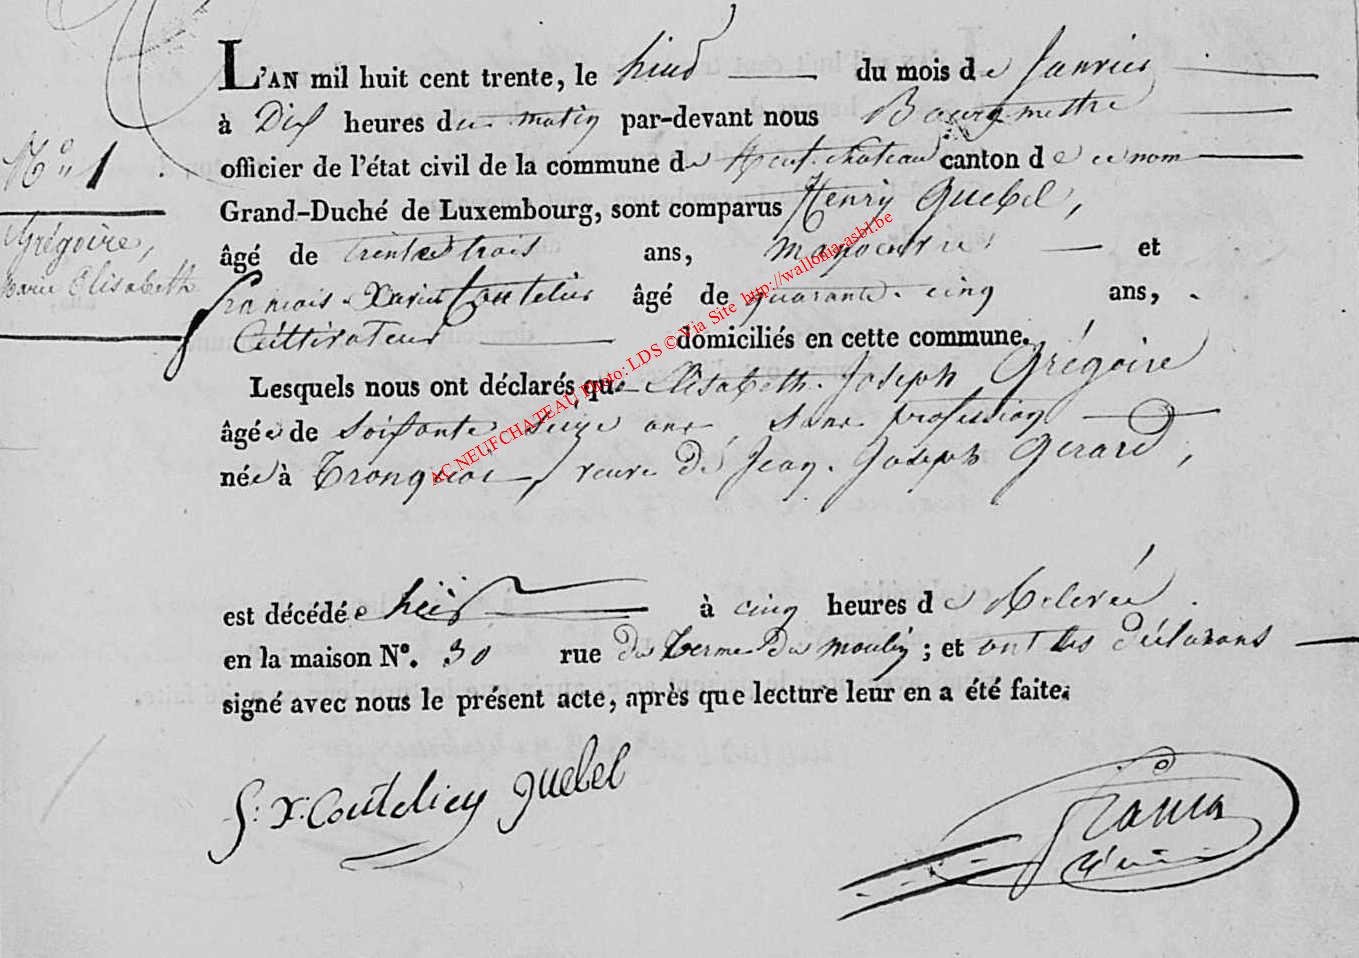 L'AN mil huit cent trente, le huit du mois de Janvier
à Dix heures du matin par-devant nous Bourgmestre
N° 1
officier de l'état civil de la commune de Neufchateau canton de ce nom
Grand-Duché de Luxembourg, sont comparus Henry Quebel,
Grégoire,
Marie Elisabeth
âgé de trente trois ans, manoeuvre et
francois Xavier Coutelier âgé de quarante cinq ans,
Cultivateur domiciliés en cette commune.
Lesquels nous ont déclarés que Elisabeth Joseph Grégoire
âgée de soixante seize ans, sans profession
née à Tronquoi, veuve de Jean Joseph Gerard,
est décédée hier à cinq heures de Relevée
en la maison N°. 30 rue du Terme du moulin ; et ont les déclarans
signé avec nous le présent acte, après que lecture leur en a été faite.
f. X. Coutelier quebel
AC NEUFCHATEAU Photo: LDS © Via Site http://wallonia-asbl.be